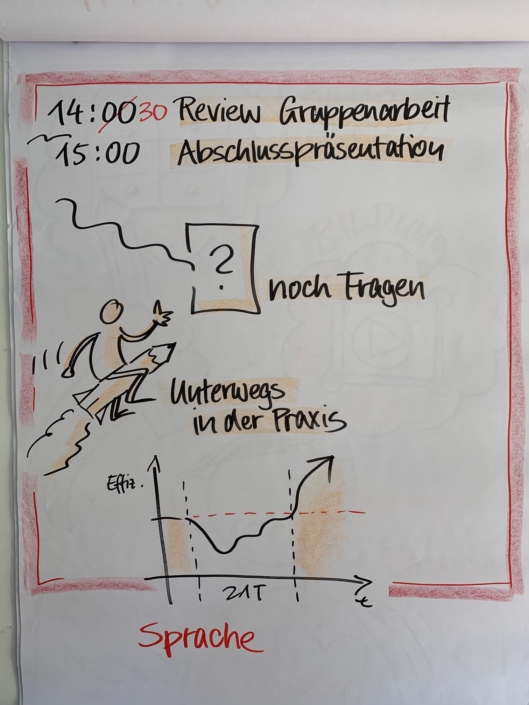 14:0030 Review Gruppenarbeit
15:00 Abschlusspräsentation
?
noch Fragen
Unterwegs
in der Praxis
Effiz.
21T
t
Sprache
BILDUNG